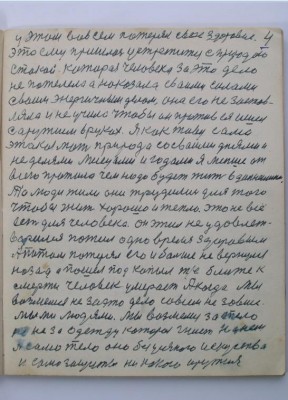 у этом вовсем потерял свое здоровье. И
это ему пришлось встретити с природою
стакой. которая человека за это дело
не пожелела а показала своими силами
своим энергичным делом, она его не застав-
ляла и не учила чтобы он против ея шел
с оружием в руках. А как таку само
этакой мать природа со своими днями и
не делями месяцами и годами
всего прошлого чем надо будет жить в дальнейшем
Но люди жили они трудились для того
чтобы жить хорошо и тепло. Это не все
есть для человека. он этим не удовлет-
ворился пожил одно время здоровым
А потом потерял его и больше не вернул
назад а пошел под копыл та ближе к
смерти человек умирает А когда мы
возмемся не за это дело совсем не зовсе
мыми людями. Мы возмемся за тело
не за одежду которая гниет
А само тело оно будучи искуства
и само защита ни какого оружия